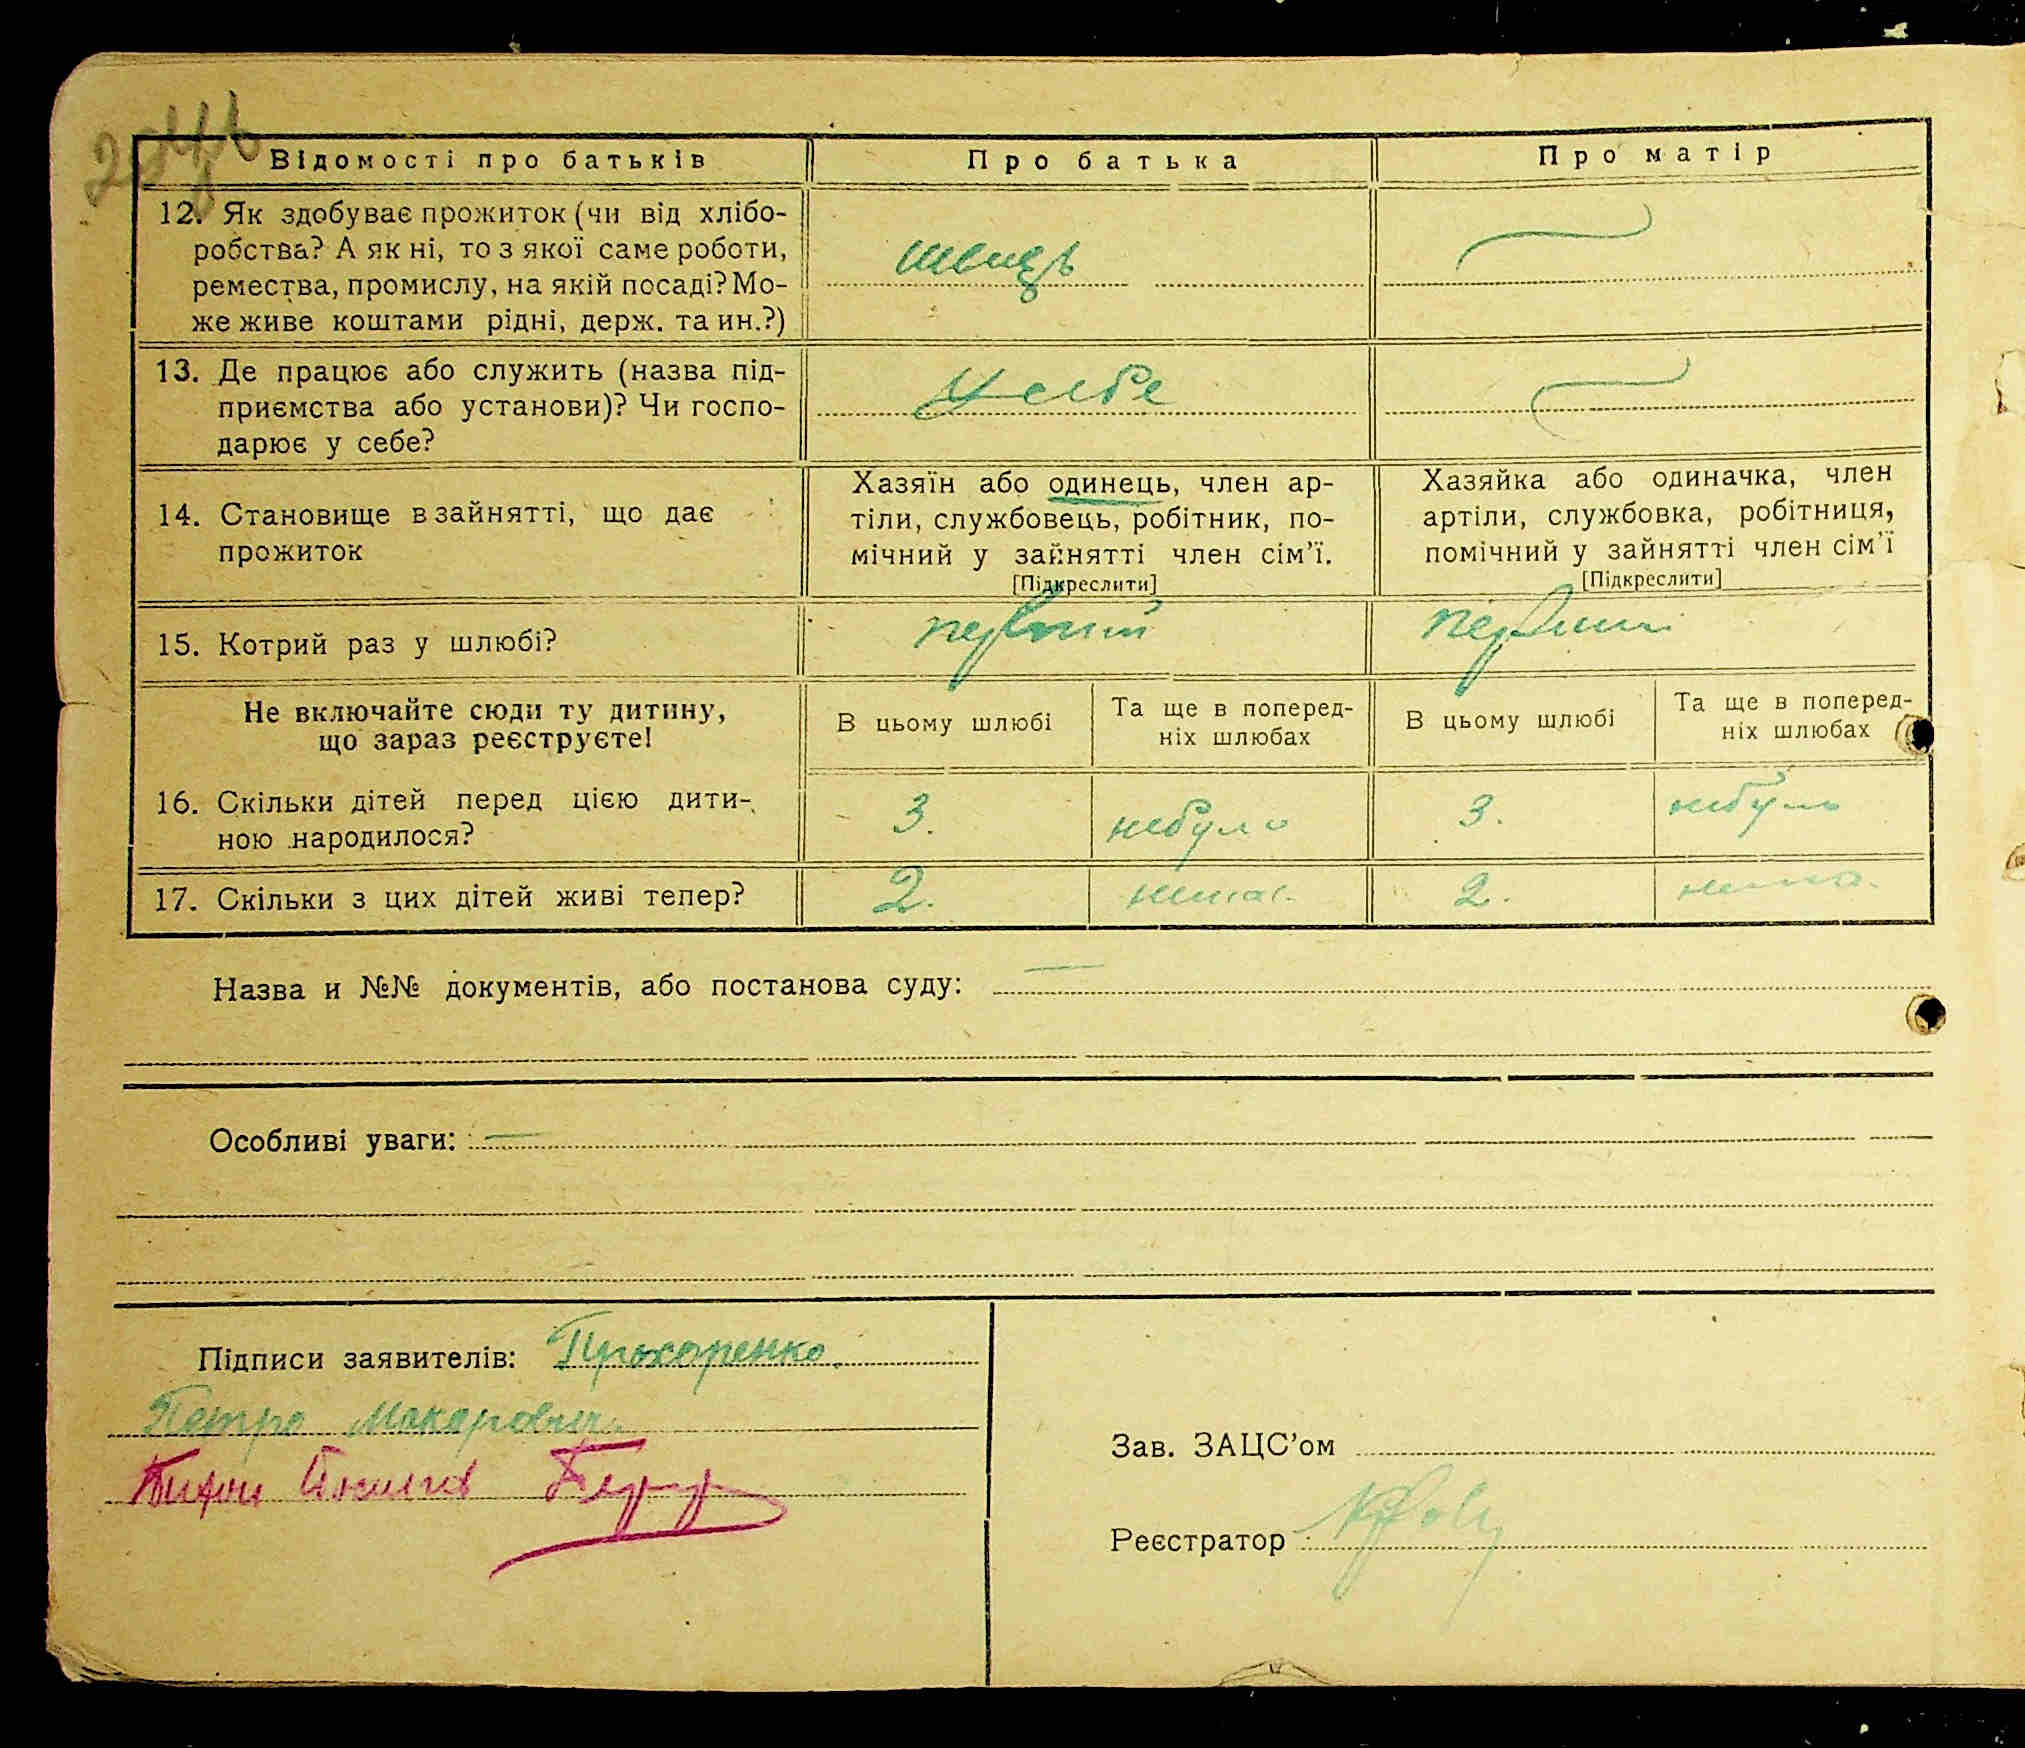 Відомості про батьків	Про батька	Про матір
12. Як здобуває прожиток (чи від хлібо-
робства? А як ні, то з якої саме роботи,
ремества, промислу, на якій посаді? Мо-
же живе коштами рідні, держ. та ин.?)
швець
13. Де працює або служить (назва під-
приємства або установи)? Чи госпо-
дарює у себе?
У себе
14. Становище в зайнятті, що дає
прожиток
Хазяїн або одинець, член ар-
тіли, службовець, робітник, по-
мічний у зайнятті член сім'ї.
[Підкреслити]
Хазяйка або одиначка, член
артіли, службовка, робітниця,
помічний у зайнятті член сім'ї
[Підкреслити]
15. Котрий раз у шлюбі?	первий	первий
Не включайте сюди ту дитину,
що зараз реєструєте!
В цьому шлюбі	Та ще в поперед-
ніх шлюбах	В цьому шлюбі	Та ще в поперед-
ніх шлюбах
16. Скільки дітей перед цією дити-
ною народилося?
3.	небуло	3.	небуло
17. Скільки з цих дітей живі тепер?	2.	нема.	2.	нема.
Назва и №№ документів, або постанова суду: —
Особливі уваги: —
Підписи заявителів: Прохоренко.
Петро Макарович.
Зав. ЗАЦС'ом
Реєстратор